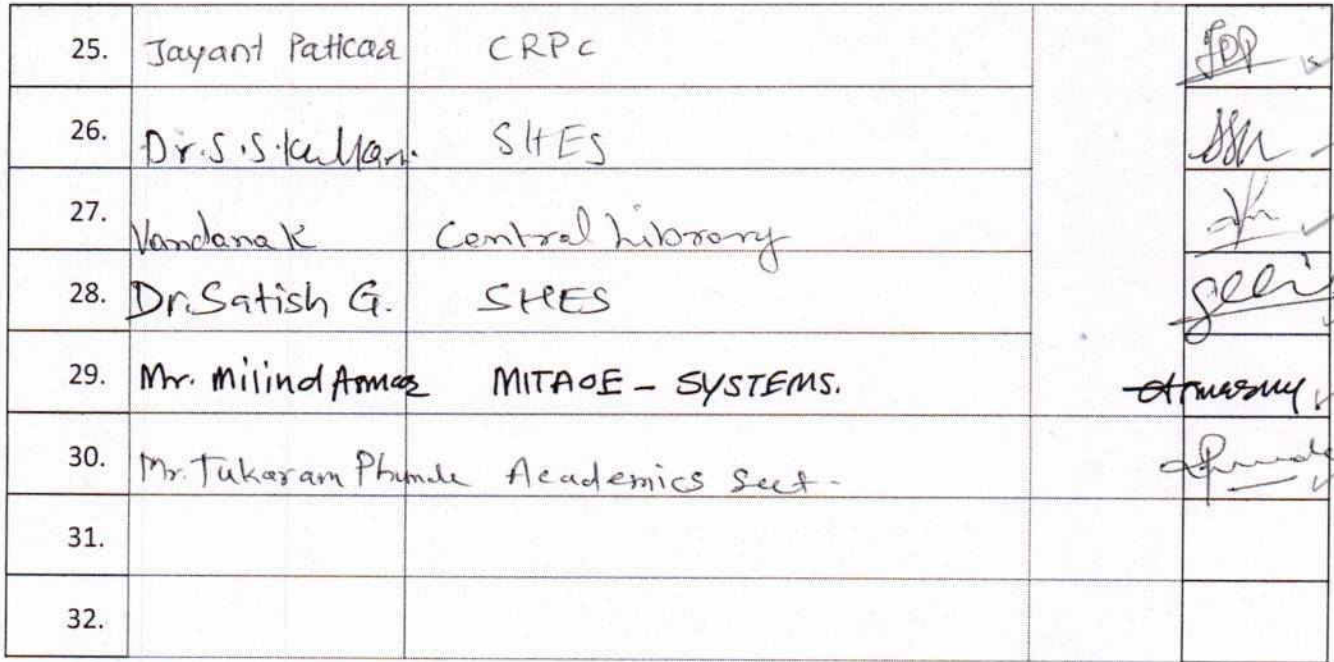 25. Jayant Patkar CRPC
26. Dr. S. S. Kulkarni. SHES
27. Vandana K Central Library
28. Dr. Satish G. SHES
29. Mr. Milind MITAOE - SYSTEMS.
30. Mr. Tukaram Phunde Academics Sect.
31.
32.